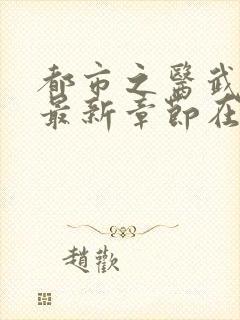 都市之醫武
最新章節在
趙歡